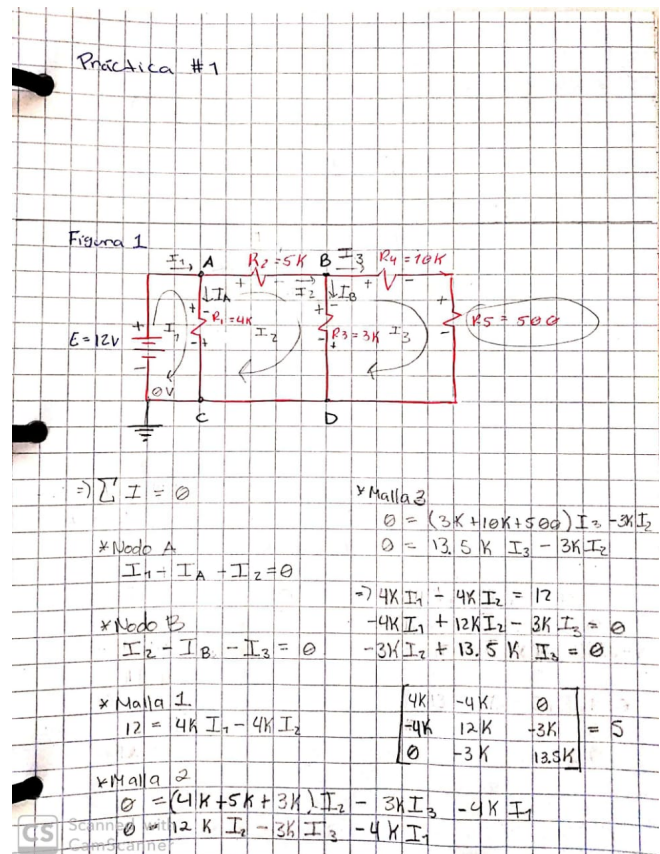 Práctica #1
Figura 1
I₁, A R₂=5K B I₃ R₄=10K
+ - I₂ + -
↓IA ↓IB
+ - + - +
E=12V + I₁ R₁=4K I₂ R3=3K I₃ R5=500
- - + - + -
0V
C D
=) ∑ I = 0
*Nodo A
I₁ - IA - I₂=0
*Nodo B
I₂ - IB - I₃ = 0
* Malla 1
12 = 4K I₁ - 4K I₂
*Malla 2
0 = (4K+5K+3K) I₂ - 3K I₃ - 4K I₁
0 = 12 K I₂ - 3K I₃ - 4K I₁
* Malla 3
0 = (3K+10K+500) I₃ - 3K I₂
0 = 13.5 K I₃ - 3K I₂
=) 4K I₁ - 4K I₂ = 12
-4K I₁ + 12K I₂ - 3K I₃ = 0
-3K I₂ + 13.5 K I₃ = 0
4K -4K 0
-4K 12K -3K = S
0 -3K 13.5K
CS Scanned with
CamScanner